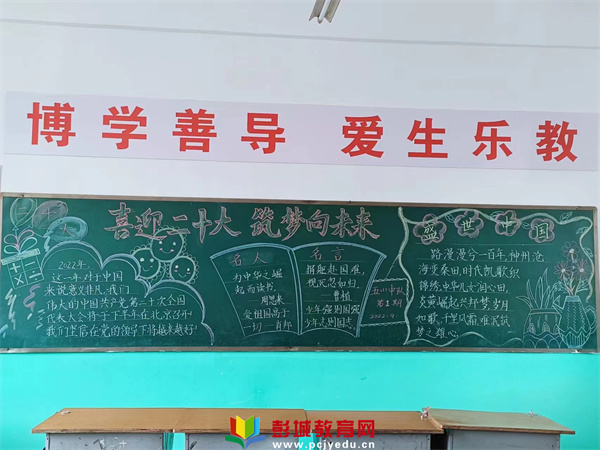 博学善导 爱生乐教
喜迎二十大 筑梦向未来
二十大
2022年,
这一年对于中国
来说意义非凡,我们
伟大的中国共产党第二十次全国
代表大会将于下半年在北京召开!
我们坚信在党的领导下将越来越好!
名人
为中华之崛
起而读书
周恩来
爱祖国高于
一切
名言
捐躯赴国难,
视死忽如归
曹植
少年强则国强
五(1)中队
第1期
2022.9.
盛世中国
路漫漫兮一百年,神州沧
海变桑田,时代凯歌织
锦绣,中华儿女润心田,
炎黄崛起兴邦梦,岁月
如歌
彭城教育网
www.pcjyedu.cn